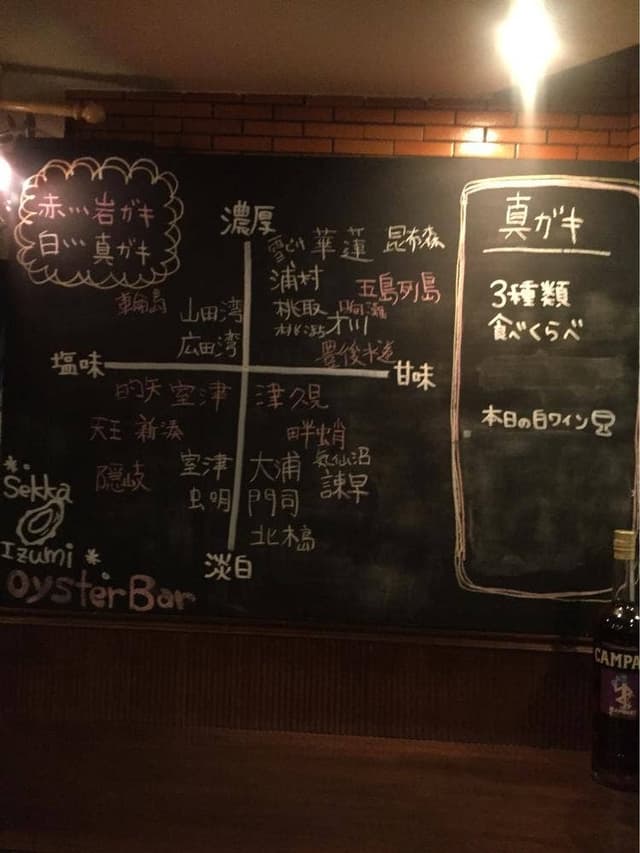 赤…岩ガキ
白…真ガキ
濃厚
華蓮 昆布森
浦村
五島列島
桃取
山田湾
広田湾
豊後水道
塩味
甘味
的矢 室津 津久見
天王 新湊
畔蛸
隠岐
室津 大浦 気仙沼
虫明 門司 諫早
北木島
淡白
真ガキ
3種類
食べくらべ
本日の白ワイン
Sekka
Izumi
Oyster Bar
CAMPA